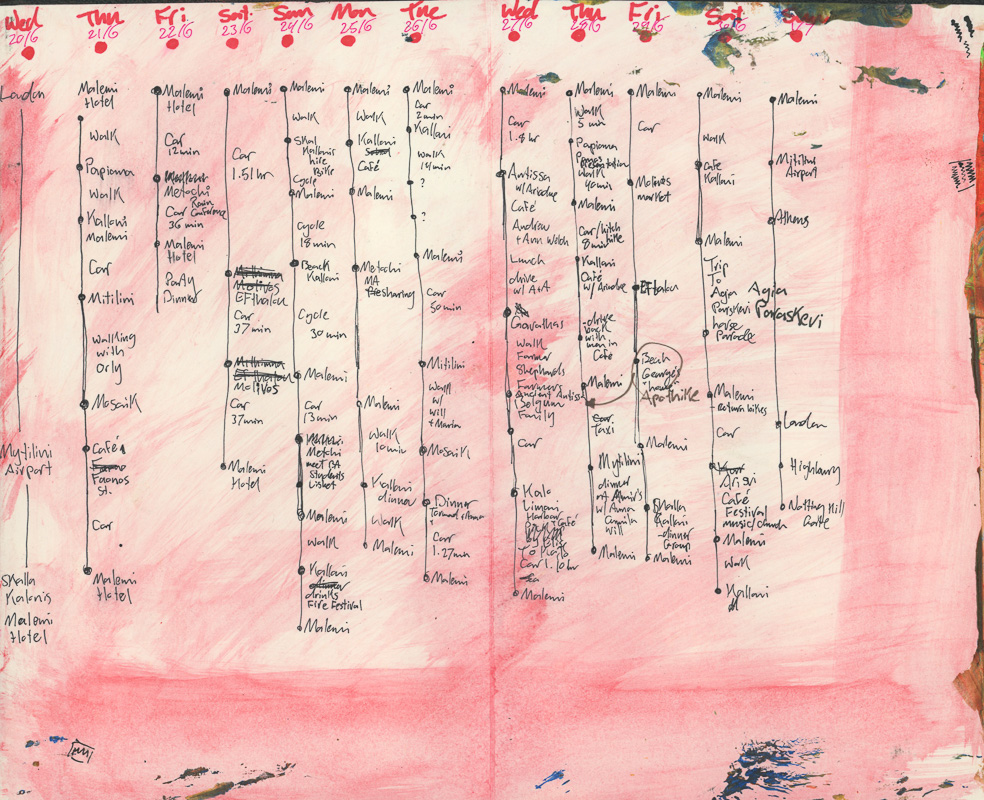 Wed
20/6
London
Mytilini
Airport
Skalla
Kalonis
Malemi
Hotel
Thu
21/6
Malemi
Hotel
Walk
Papiana
Walk
Kalloni
Malemi
Car
Mitilini
Walking
with
Orly
Mosaik
Café
Faonos
St.
Car
Malemi
Hotel
Fri
22/6
Malemi
Hotel
Car
12min
Metochi
Car
36 min
Malemi
Hotel
Party
Dinner
Sat
23/6
Malemi
Car
1.51hr
Molivos
Efthalou
Car
37min
Molivos
Car
37min
Malemi
Hotel
Sun
24/6
Malemi
Walk
Skal
Kallonis
hire
Bike
Cycle
Malemi
Cycle
18min
Beach
Kalloni
Cycle
30 min
Malemi
Car
13min
Metchi
meet BA
Students
Malemi
Walk
Kalloni
drinks
Fire Festival
Malemi
Mon
25/6
Malemi
Walk
Kalloni
Café
Malemi
Metochi
MA
sharing
Malemi
Walk
10min
Kalloni
dinner
Walk
Malemi
Tue
26/6
Malemi
Car
2min
Kalloni
Walk
14min
?
?
Malemi
Car
50min
Mitilini
Walk
w/
Will
+ Maria
Mosaik
Dinner
Car
1.27min
Malemi
Wed
27/6
Malemi
Car
1.8hr
Antissa
w/ Ariadne
Café
Andrew
+ Ann Welch
Lunch
drive
w/ A+A
Gavathas
Walk
Farmer
Shepherds
Farmers
Ancient Antissa
Belgium
Family
Car
Kalo
Limani
Harbour
Car 1.10hr
Malemi
Thu
28/6
Malemi
Walk
5min
Papiana
Presentation
Walk
40min
Malemi
Car/hitch
8min hike
Kalloni
Café
w/ Ariadne
drive
back
with
man in
Café
Malemi
Taxi
Mytilini
dinner
w/ Anna
Camila
Will
Malemi
Fri
29/6
Malemi
Car
Molivos
market
Eftalou
Beach
George's
Apothike
Malemi
Skalla
Kalloni
dinner
Group
Malemi
Sat
30/6
Malemi
Walk
Cafe
Kalloni
Malemi
Trip
To
Agia
Paraskevi
horse
Parade
Agia
Paraskevi
Malemi
- return bikes
Car
Arisvi
Café
Festival
music/church
Malemi
Walk
Kalloni
Malemi
Mitilini
Airport
Athens
London
Highbury
Notting Hill
Gate